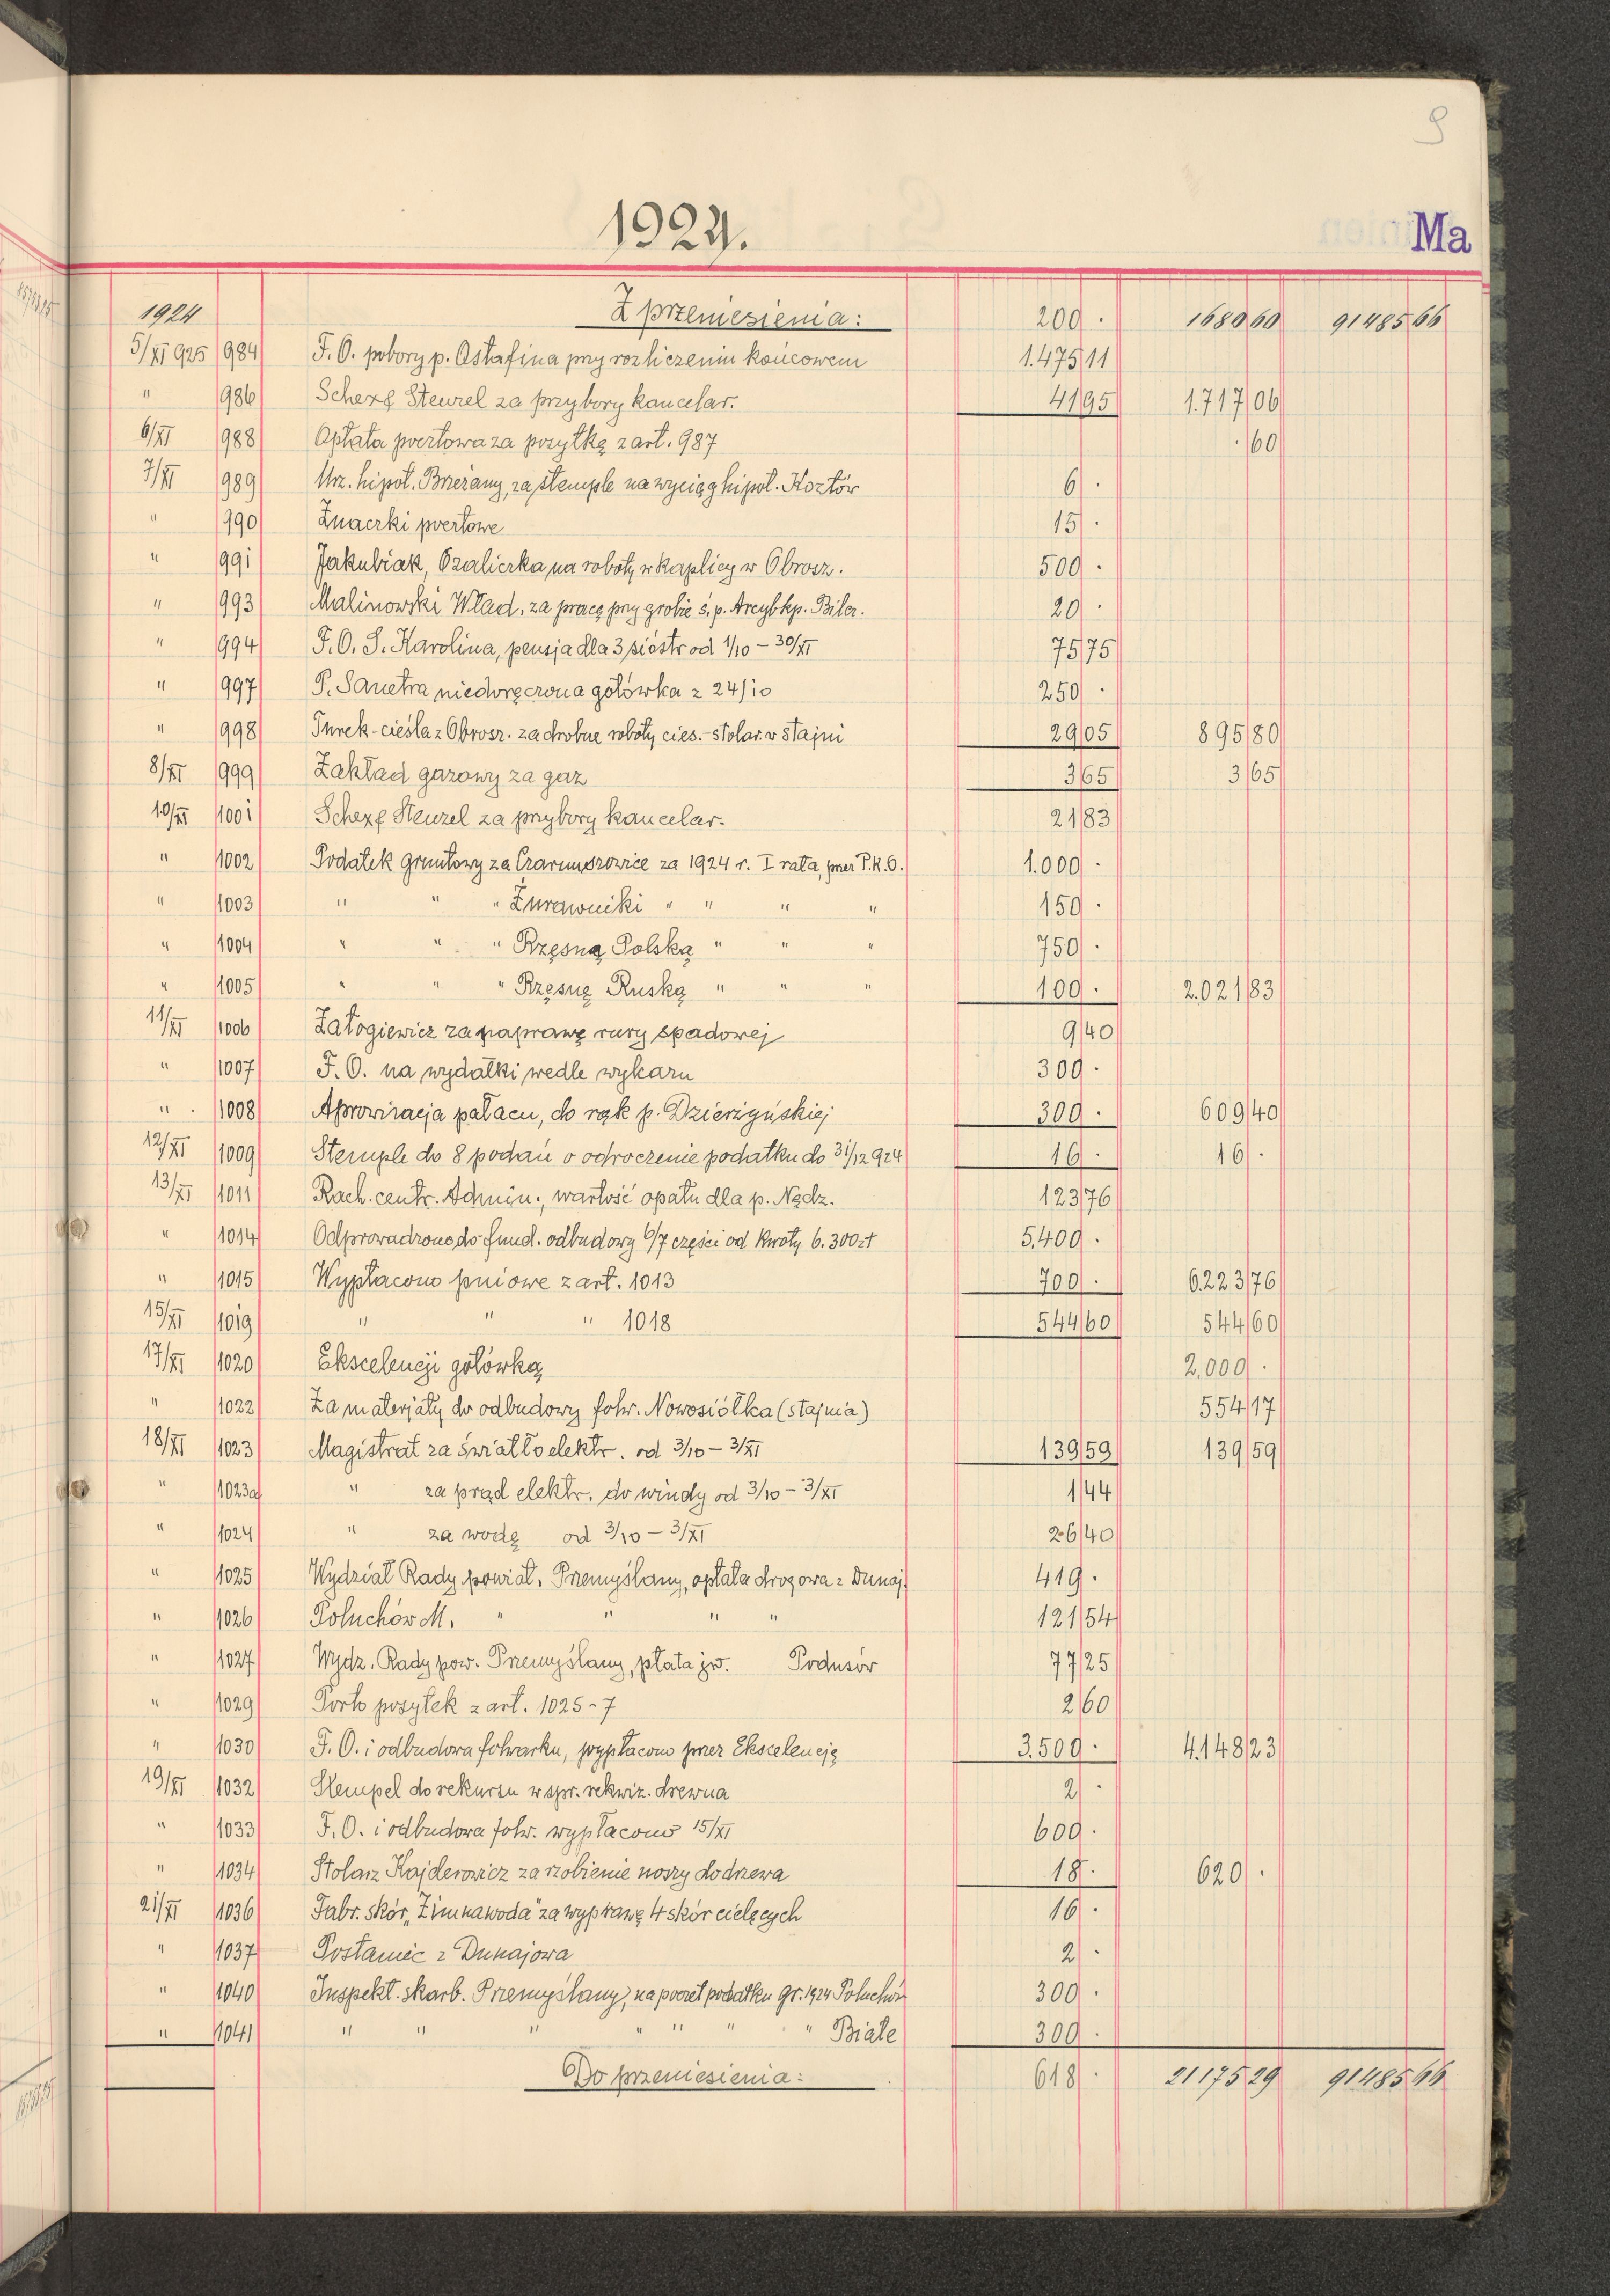 9
1924.
Ma
1924 Z przeniesienia: 200 . 1680 60 91485 66
5/XI 925 984 F. O. pobory p. Ostafina przy rozliczeniu końcowem 1.475 11
" 986 Schexf Stenzel za przybory kancelar. 41 95 1.717 06
6/XI 988 Opłata pocztowa za posyłkę z art. 987 . 60
7/XI 989 Urz. hipot. Brzeżany, za stemple na wyciąg hipot. 6 .
" 990 Znaczki pocztowe 15 .
" 991 Jakubiak, Ozalierka na roboty w kaplicy w Obrosz. 500 .
" 993 Malinowski Wład. za pracę przy grobie ś. p. Arcybkp. Bilcz. 20 .
" 994 F. O. S. Karolina, pensja dla 3 sióstr od 1/10 – 30/XI 75 75
" 997 P. Sanetra niedoręczona gotówka z 24/10 250 .
" 998 Turek - cieśla z Obrosz. za drobne roboty cies.-stolar. w stajni 29 05 895 80
8/XI 999 Zakład gazowy za gaz 3 65 3 65
10/XI 1001 Schexf Stenzel za przybory kancelar. 21 83
" 1002 Podatek gruntowy za Czarnuszowice za 1924 r. I rata, przez P.K.O. 1.000 .
" 1003 " " " Żurawniki " " " " 150 .
" 1004 " " " Rzęsną Polską " " " 750 .
" 1005 " " " Rzęsnę Ruską " " " 100 . 2.021 83
11/XI 1006 Załogiewicz za naprawę rury spadowej 9 40
" 1007 F. O. na wydatki wedle wykazu 300 .
" . 1008 Aprowizacja pałacu, do rąk p. Dzierżyńskiej 300 . 609 40
12/XI 1009 Stemple do 8 podań o odroczenie podatku do 31/12 924 16 . 16 .
13/XI 1011 Rach. centr. Admin., wartość opału dla p. Nędz. 123 76
" 1014 Odprowadzono do fund. odbudowy 6/7 części od kwoty 6.300 zł 5,400 .
" 1015 Wypłacono pniowe z art. 1013 700 . 6.223 76
15/XI 1019 " " " 1018 544 60 544 60
17/XI 1020 Ekscelencji gotówką 2,000 .
" 1022 Za materjały do odbudowy folw. Nowosiółka (stajnia) 554 17
18/XI 1023 Magistrat za światło elektr. od 3/10 – 3/XI 139 59 139 59
" 1023a " za prąd elektr. do windy od 3/10 – 3/XI 1 44
" 1024 " za wodę od 3/10 – 3/XI 26 40
" 1025 Wydział Rady powiat. Przemyślany, opłata drogowa z Dunaj. 419 .
" 1026 Poluchów M. " " " " 121 54
" 1027 Wydz. Rady pow. Przemyślany, płata jw. Podusów 77 25
" 1029 Porto posyłek z art. 1025 - 7 2 60
" 1030 F. O. i odbudowa folwarku, wypłacono przez Ekscelencję 3.500 . 4.148 23
19/XI 1032 Stempel do rekursu w spr. rekwiz. drewna 2 .
" 1033 F. O. i odbudowa folw. wypłacono 15/XI 600 .
" 1034 Stolarz Kajderowicz za zrobienie noszy do drzewa 18 . 620 .
21/XI 1036 Fabr. skór „Zimnawoda" za wyprawę 4 skór cielęcych 16 .
" 1037 Posłaniec z Dunajowa 2 .
" 1040 Inspekt. skarb. Przemyślany, na poczet podatku gr. 1924 Poluchów 300 .
" 1041 " " " " " " " Białe 300 .
Do przeniesienia: 618 . 21175 29 91485 66